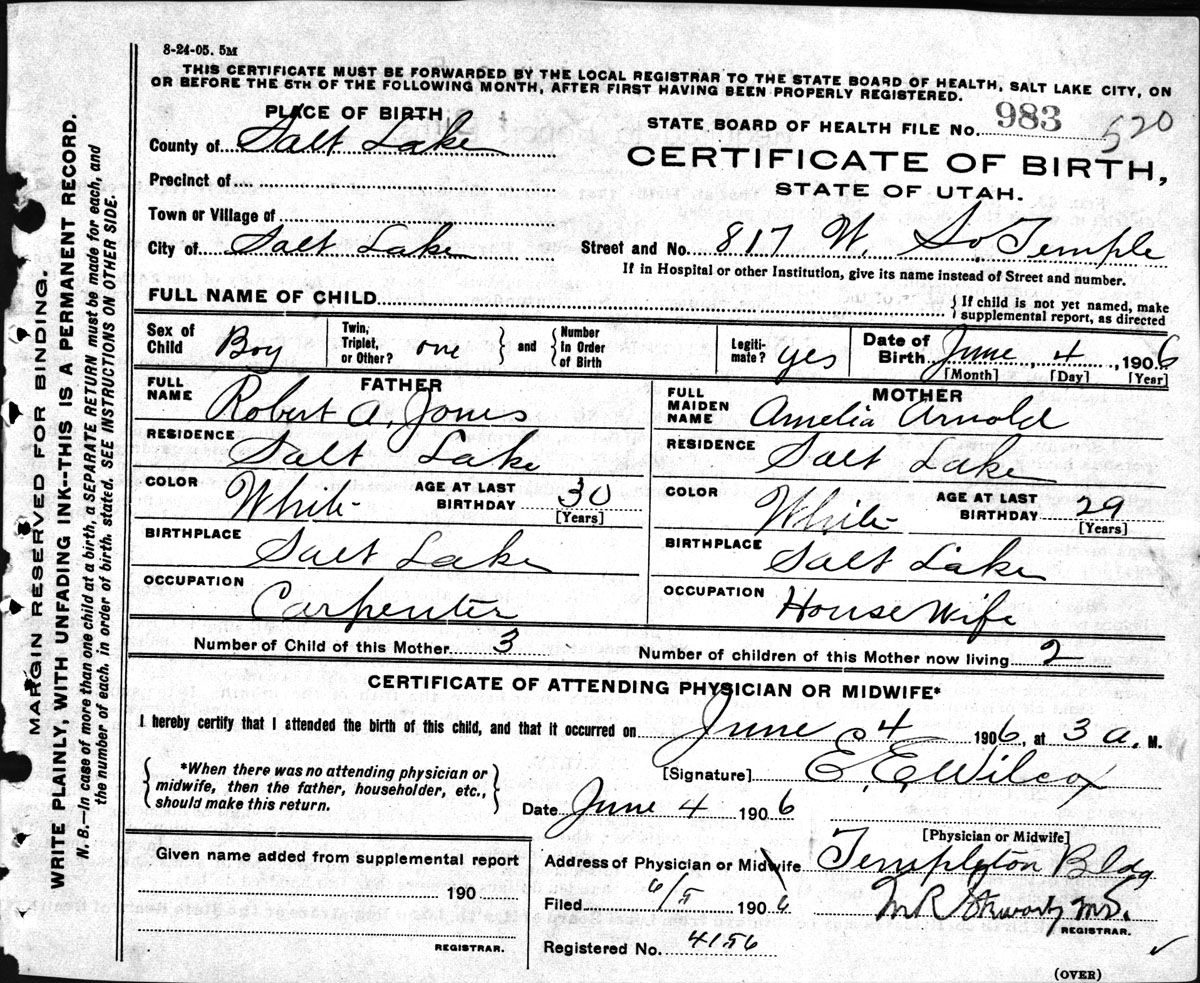 8-24-05. 5M
THIS CERTIFICATE MUST BE FORWARDED BY THE LOCAL REGISTRAR TO THE STATE BOARD OF HEALTH, SALT LAKE CITY, ON
OR BEFORE THE 5TH OF THE FOLLOWING MONTH, AFTER FIRST HAVING BEEN PROPERLY REGISTERED.
PLACE OF BIRTH
STATE BOARD OF HEALTH FILE No. 983 520
County of Salt Lake
CERTIFICATE OF BIRTH,
STATE OF UTAH.
Precinct of
Town or Village of
City of Salt Lake
Street and No. 817 W. So. Temple
If in Hospital or other Institution, give its name instead of Street and number.
FULL NAME OF CHILD
{ If child is not yet named, make
supplemental report, as directed
Sex of Child Boy
Twin, Triplet, or Other? one } and { Number In Order of Birth
Legiti-mate? yes
Date of Birth June 4, 1906
[Month] [Day] [Year]
FATHER
FULL NAME Robert A. Jones
RESIDENCE Salt Lake
COLOR White
AGE AT LAST BIRTHDAY 30
[Years]
BIRTHPLACE Salt Lake
OCCUPATION Carpenter
MOTHER
FULL MAIDEN NAME Amelia Arnold
RESIDENCE Salt Lake
COLOR White
AGE AT LAST BIRTHDAY 29
[Years]
BIRTHPLACE Salt Lake
OCCUPATION House Wife
Number of Child of this Mother 3
Number of children of this Mother now living 2
CERTIFICATE OF ATTENDING PHYSICIAN OR MIDWIFE*
I hereby certify that I attended the birth of this child, and that it occurred on June 4 1906, at 3 a. M.
{ *When there was no attending physician or
midwife, then the father, householder, etc.,
should make this return. }
[Signature] E. E. Wilcox
Date June 4 1906
[Physician or Midwife]
Given name added from supplemental report
190
REGISTRAR.
Address of Physician or Midwife Templeton Bldg
Filed 6/5 1906
M.D.
REGISTRAR.
Registered No. 4156
(OVER)
MARGIN RESERVED FOR BINDING.
WRITE PLAINLY, WITH UNFADING INK--THIS IS A PERMANENT RECORD.
N. B.—In case of more than one child at a birth, a SEPARATE RETURN must be made for each, and
the number of each, in order of birth, stated. SEE INSTRUCTIONS ON OTHER SIDE.